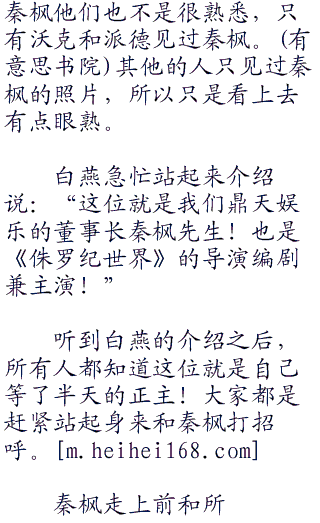 秦枫他们也不是很熟悉，只
有沃克和派德见过秦枫。(有
意思书院)其他的人只见过秦
枫的照片，所以只是看上去
有点眼熟。
白燕急忙站起来介绍
说：“这位就是我们鼎天娱
乐的董事长秦枫先生！也是
《侏罗纪世界》的导演编剧
兼主演！”
听到白燕的介绍之后，
所有人都知道这位就是自己
等了半天的正主！大家都是
赶紧站起身来和秦枫打招
呼。[m.heihei168.com]
秦枫走上前和所